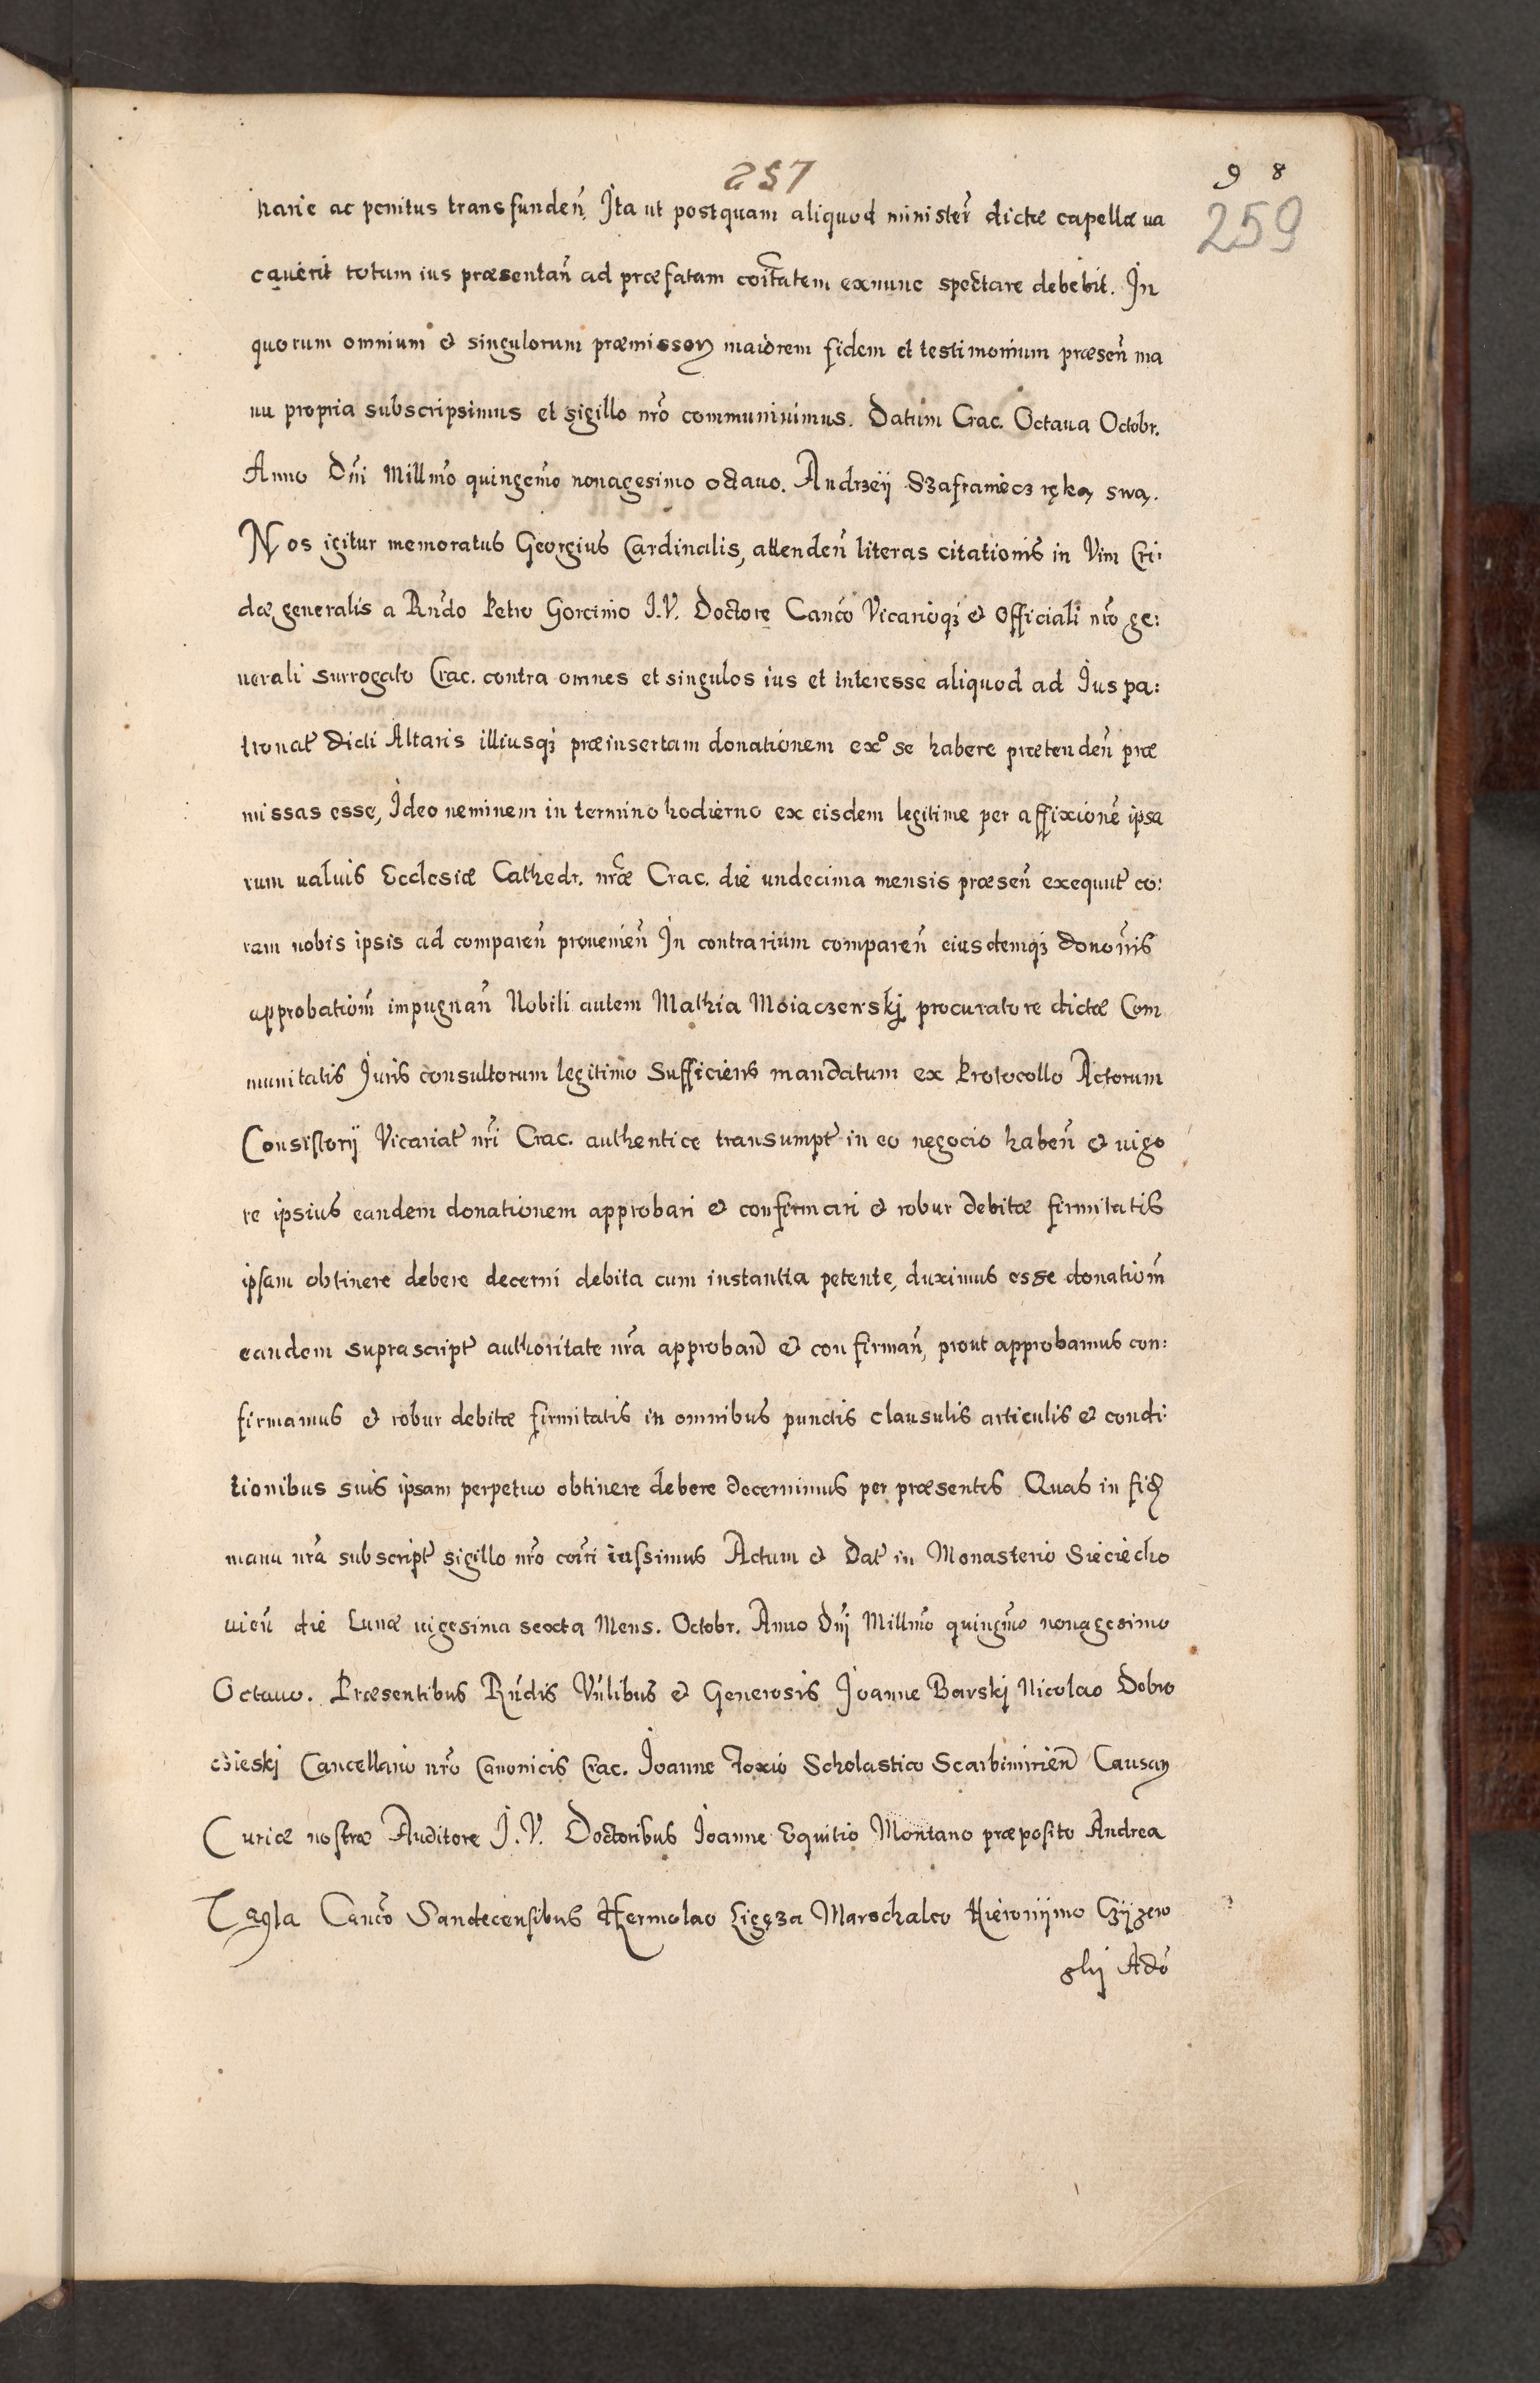 257
98
259
narie ac penitus transfunden̄. Ita ut postquam aliquod minister̄ dictæ capellæ va
caverit totum ius præsentan̄ ad præfatam coitatem exnunc spectare debebit. In
quorum omnium & singulorum præmissoꝝ maiorem fidem et testimonium præsen̄ ma
nu propria subscripsimus et sigillo nr̄o communivimus. Datum Crac. Octava Octobr.
Anno Dn̄i Millmo quingemo nonagesimo octavo. Andrzeÿ Szafraniecz ręką swą.
Nos igitur memoratus Georgius Cardinalis, attenden̄ literas citationis in Vim Cri:
dæ generalis a Rn̄do Petro Gorcinio I.V. Doctore Canco Vicarioq₃ & Officiali nr̄o ge:
nerali surrogato Crac. contra omnes et singulos ius et interesse aliquod ad Ius pa:
tronat̄ dicti Altaris illiusq₃ præinsertam donationem exº se habere prætenden̄ præ
missas esse, Ideo neminem in termino hodierno ex eisdem legitime per affixionē ipsa
rum valvis Ecclesiæ Cathedr. nr̄æ Crac. die undecima mensis præsen̄ exequut̄ co:
ram nobis ipsis ad comparen̄ provenien̄ In contrarium comparen̄ eiusdemq₃ donōnis
approbationm̄ impugnan̄ Nobili autem Mathia Moiaczewskj procuratore dictæ Com
munitatis Iuris consultorum legitimo Sufficiens mandatum ex Protocollo Actorum
Consistorÿ Vicariat̄ nr̄i Crac. authentice transumpt̄ in eo negocio haben̄ & vigo
re ipsius eandem donationem approbari & confirmari & robur debitæ firmitatis
ipsam obtinere debere decerni debita cum instantia petente, duximus esse donationm̄
eandem suprascript̄ authoritate nr̄a approband̄ & confirman̄, prout approbamus con:
firmamus & robur debitæ firmitatis in omnibus punctis clausulis articulis & condi:
tionibus suis ipsam perpetuo obtinere debere decernimus per præsentes Quas in fid̄
manu nr̄a subscript̄ sigillo nr̄o coīri iussimus Actum & Dat̄ in Monasterio Sieciecho
vien̄ die Lunæ vigesima sexta Mens. Octobr. Anno Dn̄j Millmo quingmo nonagesimo
Octavo. Præsentibus Rn̄dis Vn̄libus & Generosis Ioanne Barskj Nicolao Dobro
cieskj Cancellario nr̄o Canonicis Crac. Ioanne Foxio Scholastico Scarbimirien̄ Causaꝝ
Curiæ nostræ Auditore I.V. Doctoribus Ioanne Equitio Montano præposito Andrea
Tągla Canco Sandecensibus Hermolao Ligęza Marschalco Hieronÿmo Czÿzew
skj Adō